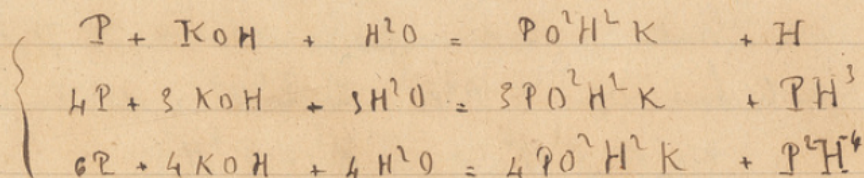 P + KOH + H²O = PO²H²K + H
4P + 3KOH + 3H²O = 3PO²H²K + PH³
6P + 4KOH + 4H²O = 4PO²H²K + P²H⁴